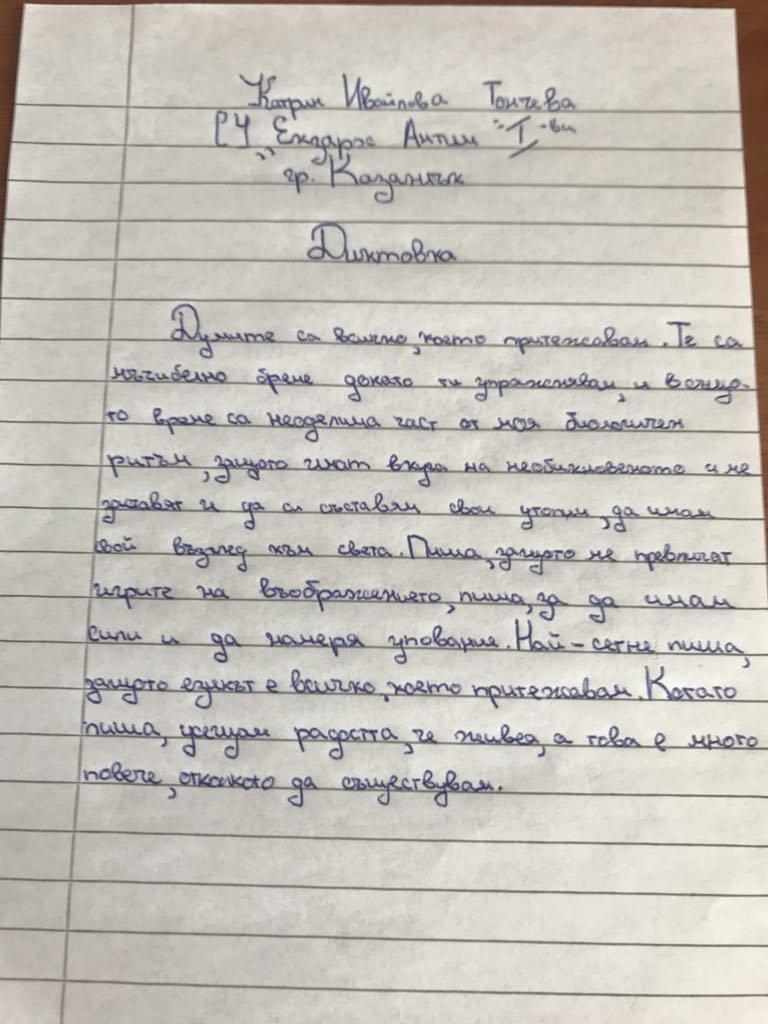 Катрин Ивайлова Тончева
СУ „Екзарх Антим "I"-ви
гр. Казанлък
Диктовка
Думите са всичко, което притежавам. Те са
мъчибелно бреме докато ги упражнявам, и в също-
то време са неоделима част от моя биологичен
ритъм, защото имат вкуса на необикновеното и ме
заставят и да си съставям свои утопии, да имам
свой възглед към света. Пиша, защото ме превличат
игрите на въображението, пиша, за да имам
сили и да намеря упование. Най-сетне пиша,
защото езикът е всичко, което притежавам. Когато
пиша, усещам радостта, че живея, а това е много
повече, отколкото да съществувам.